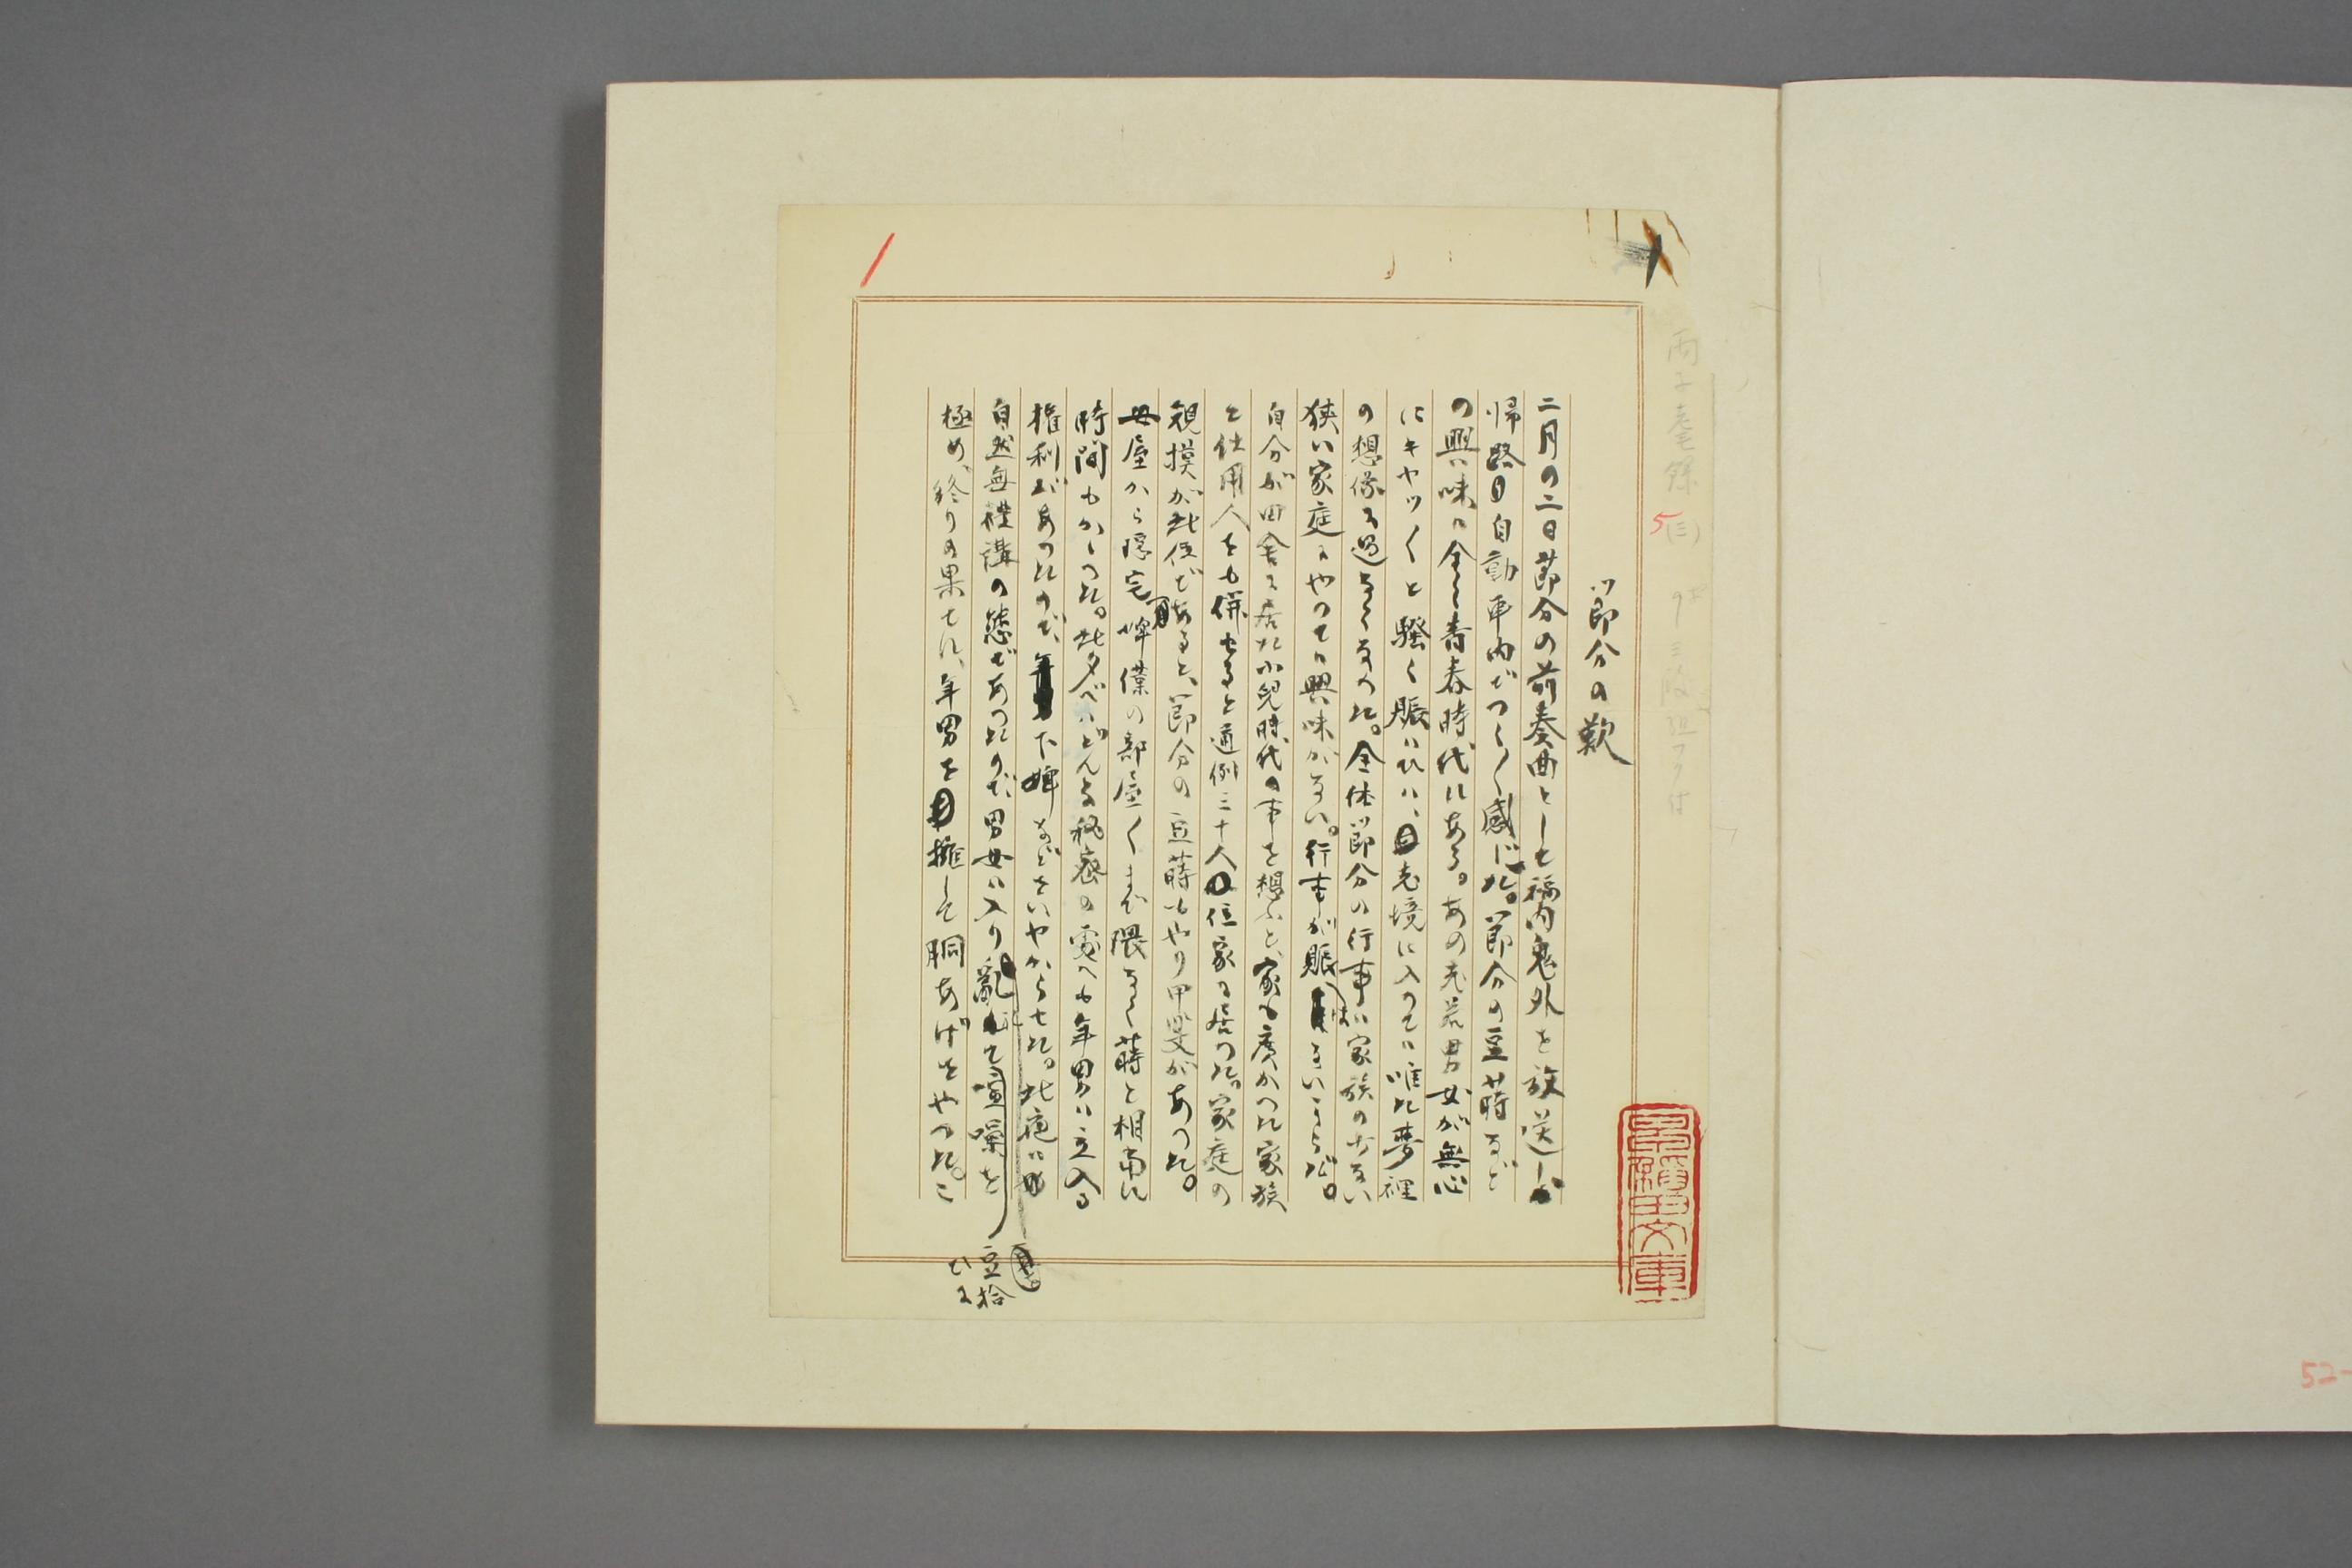 節分の歎
二月の二日節分の前奏曲として福内鬼外を放送し
帰路自動車内でつく〲感じた。節分の豆蒔など
の興味は全く青春時代にある。あの老若男女が無心
にキヤツ〱と騒く賑はひは、老境に入つては唯た夢裡
の想像に過きなくなつた。全体節分の行事は家族の少ない
狭い家庭にやつては興味がない。行事が賑はないからだ。
自分が田舎に居た小児時代の事を想ふと、家も広かつた家族
と仕用人をも併せると通例三十人位家に居つた。家庭の
規摸が此位であると、節分の豆蒔もやり甲斐があつた。
母屋から隠宅婢僕の部屋〱まで隈なく蒔と相当に
時間もかゝつた。此夕べはどんな秘密の処へも年男は立入る
権利があつたので、下婢などをいやからせた。此夜は
自然無礼講の態であつたので男女は入り乱れて豆拾ひに喧噪を
極め、終りの果てに、年男を擁して胴あげをやつた。こ
丙子耄録
5
(三)
52-